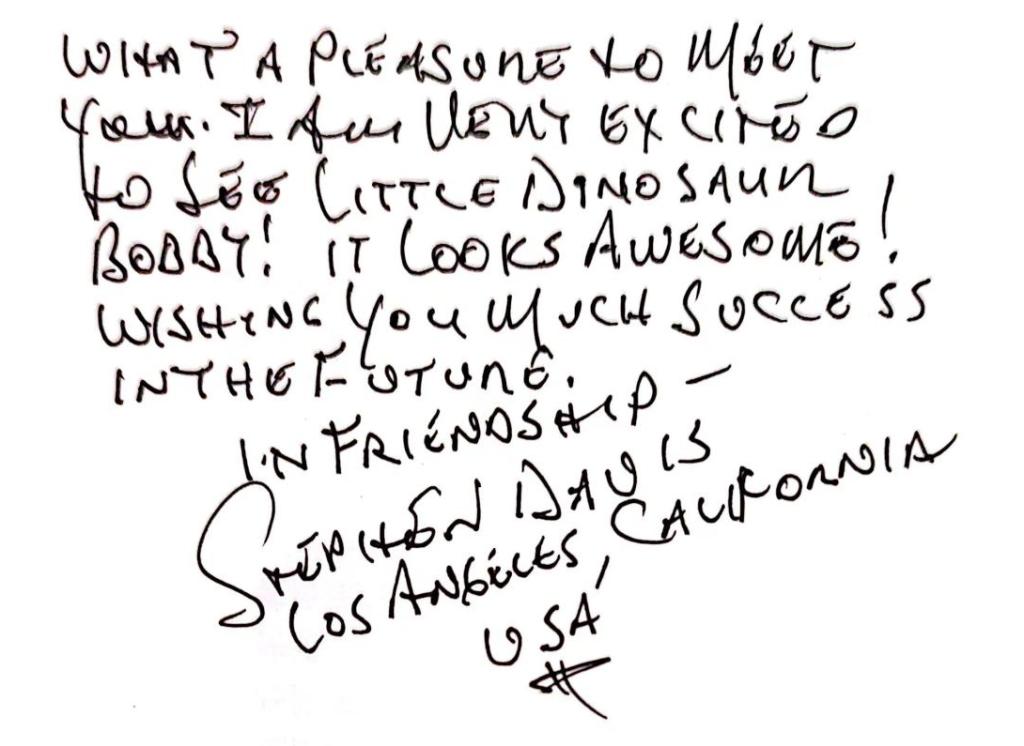 WHAT A PLEASURE TO MEET
YOU. I AM VERY EXCITED
TO SEE LITTLE DINOSAUR
BOBBY! IT LOOKS AWESOME!
WISHING YOU MUCH SUCCESS
IN THE FUTURE.
IN FRIENDSHIP -
STEPHEN DAVIS
LOS ANGELES, CALIFORNIA
USA